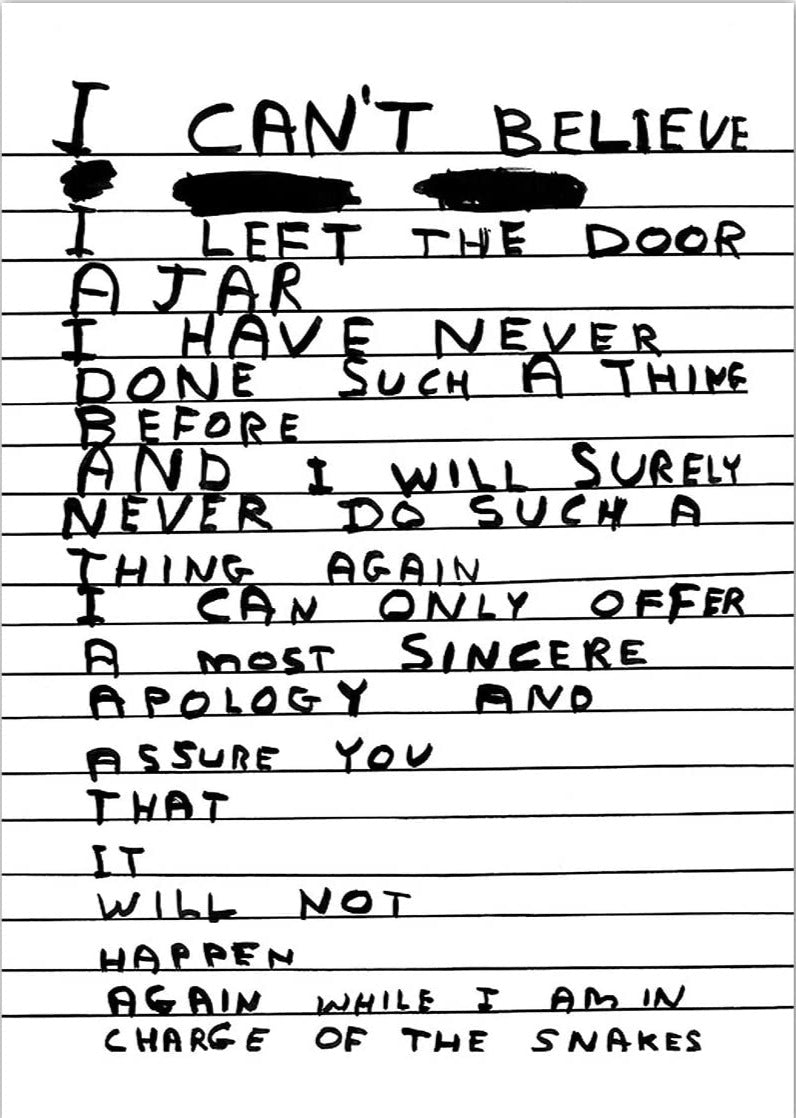 I CAN'T BELIEVE
I LEFT THE DOOR
AJAR
I HAVE NEVER
DONE SUCH A THING
BEFORE
AND I WILL SURELY
NEVER DO SUCH A
THING AGAIN
I CAN ONLY OFFER
A MOST SINCERE
APOLOGY AND
ASSURE YOU
THAT
IT
WILL NOT
HAPPEN
AGAIN WHILE I AM IN
CHARGE OF THE SNAKES